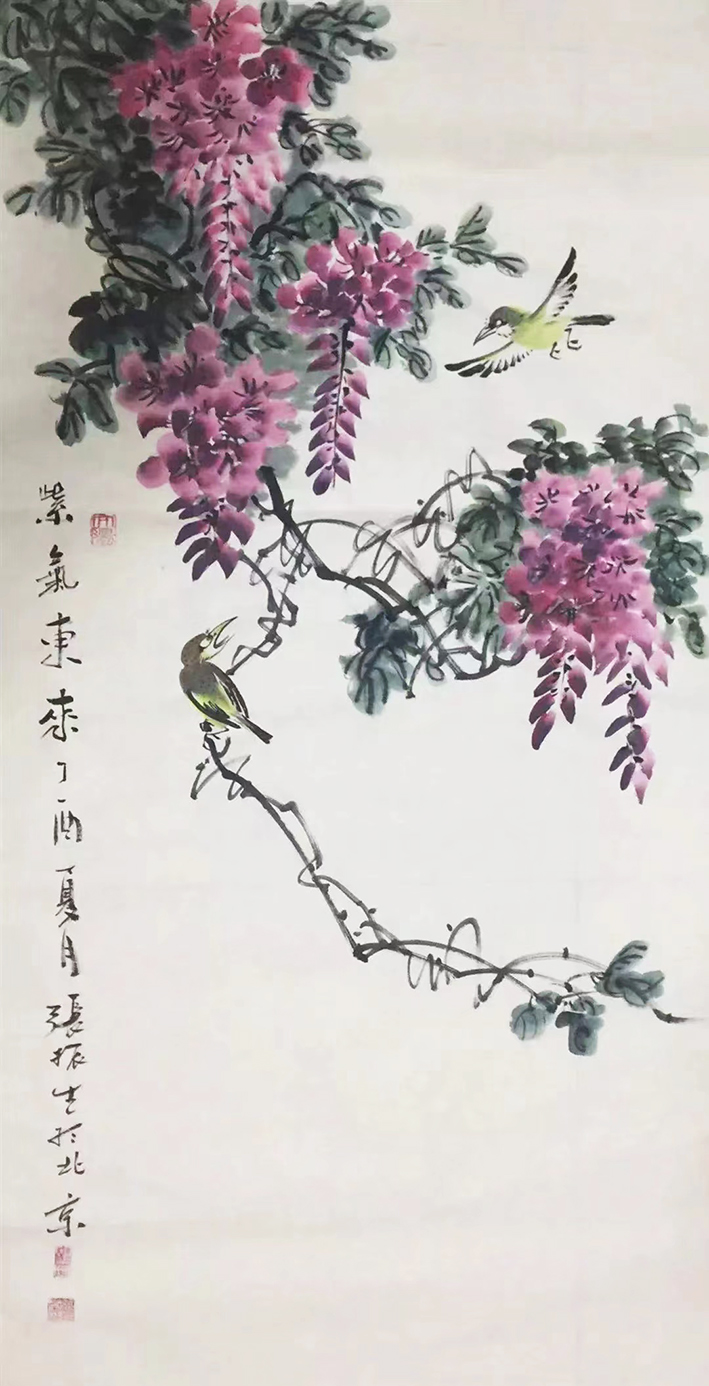 紫氣東來丁酉夏月張振生於北京